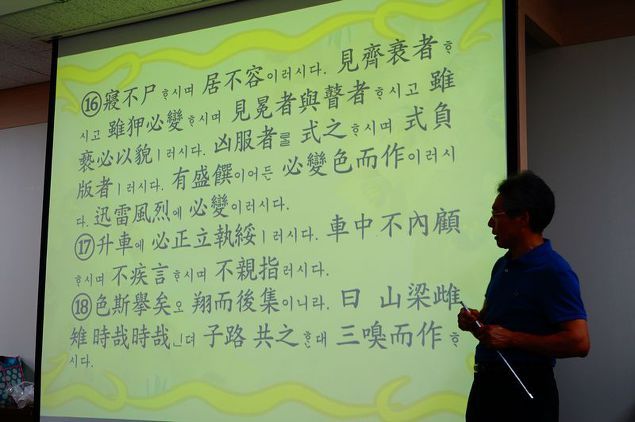 ⑯寢不尸ᄒᆞ시며 居不容이러시다. 見齊衰者ᄒᆞ
시고 雖狎必變ᄒᆞ시며 見冕者與瞽者ᄒᆞ시고 雖
褻必以貌ㅣ러시다. 凶服者를 式之ᄒᆞ시며 式負
版者ㅣ러시다. 有盛饌이어든 必變色而作이러시
다. 迅雷風烈에 必變이러시다.
⑰升車에 必正立執綏ㅣ러시다. 車中 不內顧
ᄒᆞ시며 不疾言ᄒᆞ시며 不親指러시다.
⑱色斯擧矣오 翔而後集이니라. 曰 山梁雌
雉 時哉時哉ᅟᅵᆫ뎌 子路 共之ᄒᆞᆫ대 三嗅而作ᄒᆞ
시다.